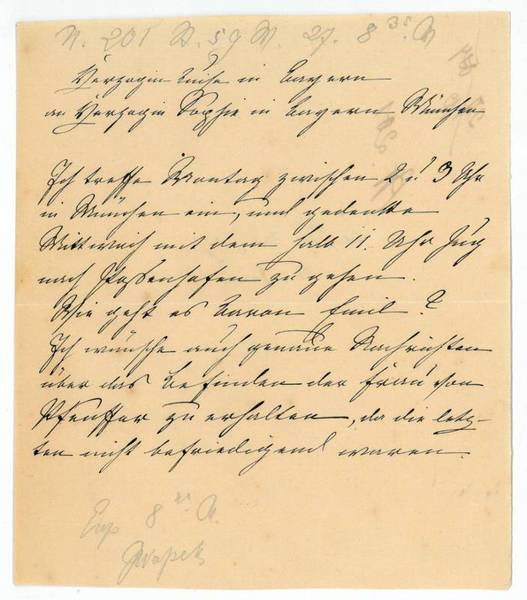 N. 201 W. 59 M. 27. 8 35 A
Herzogin Luise in Bayern
an Herzogin Sophie in Bayern München
Ich treffe Montag zwischen 2 u. 3 Uhr
in München ein, und gedenke
Mittwoch mit dem halb 11. Uhr Zug
nach Possenhofen zu gehen.
Wie geht es Baron Emil?
Ich wünsche auch genaue Nachrichten
über das Befinden der Frau von
Pfeuffer zu erhalten, da die letz-
ten nicht befriedigend waren.
8 A.